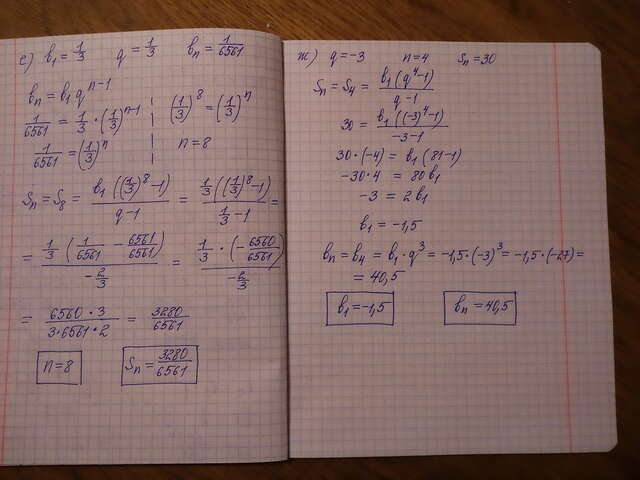 е) b₁ = 1/3   q = 1/3   bₙ = 1/6561
bₙ = b₁ qⁿ⁻¹
1/6561 = 1/3 · (1/3)ⁿ⁻¹ | (1/3)⁸ = (1/3)ⁿ
1/6561 = (1/3)ⁿ | n = 8
Sₙ = S₈ = b₁((1/3)⁸ - 1)/(q - 1) = 1/3((1/3)⁸ - 1)/(1/3 - 1) =
= 1/3 (1/6561 - 6561/6561)/(-2/3) = 1/3 · (-6560/6561)/(-2/3)
= 6560 · 3/(3 · 6561 · 2) = 3280/6561
n = 8   Sₙ = 3280/6561
ж) q = -3   n = 4   Sₙ = 30
Sₙ = S₄ = b₁(q⁴ - 1)/(q - 1)
30 = b₁((-3)⁴ - 1)/(-3 - 1)
30 · (-4) = b₁(81 - 1)
-30 · 4 = 80b₁
-3 = 2b₁
b₁ = -1,5
bₙ = b₄ = b₁ · q³ = -1,5 · (-3)³ = -1,5 · (-27) =
= 40,5
b₁ = -1,5   bₙ = 40,5